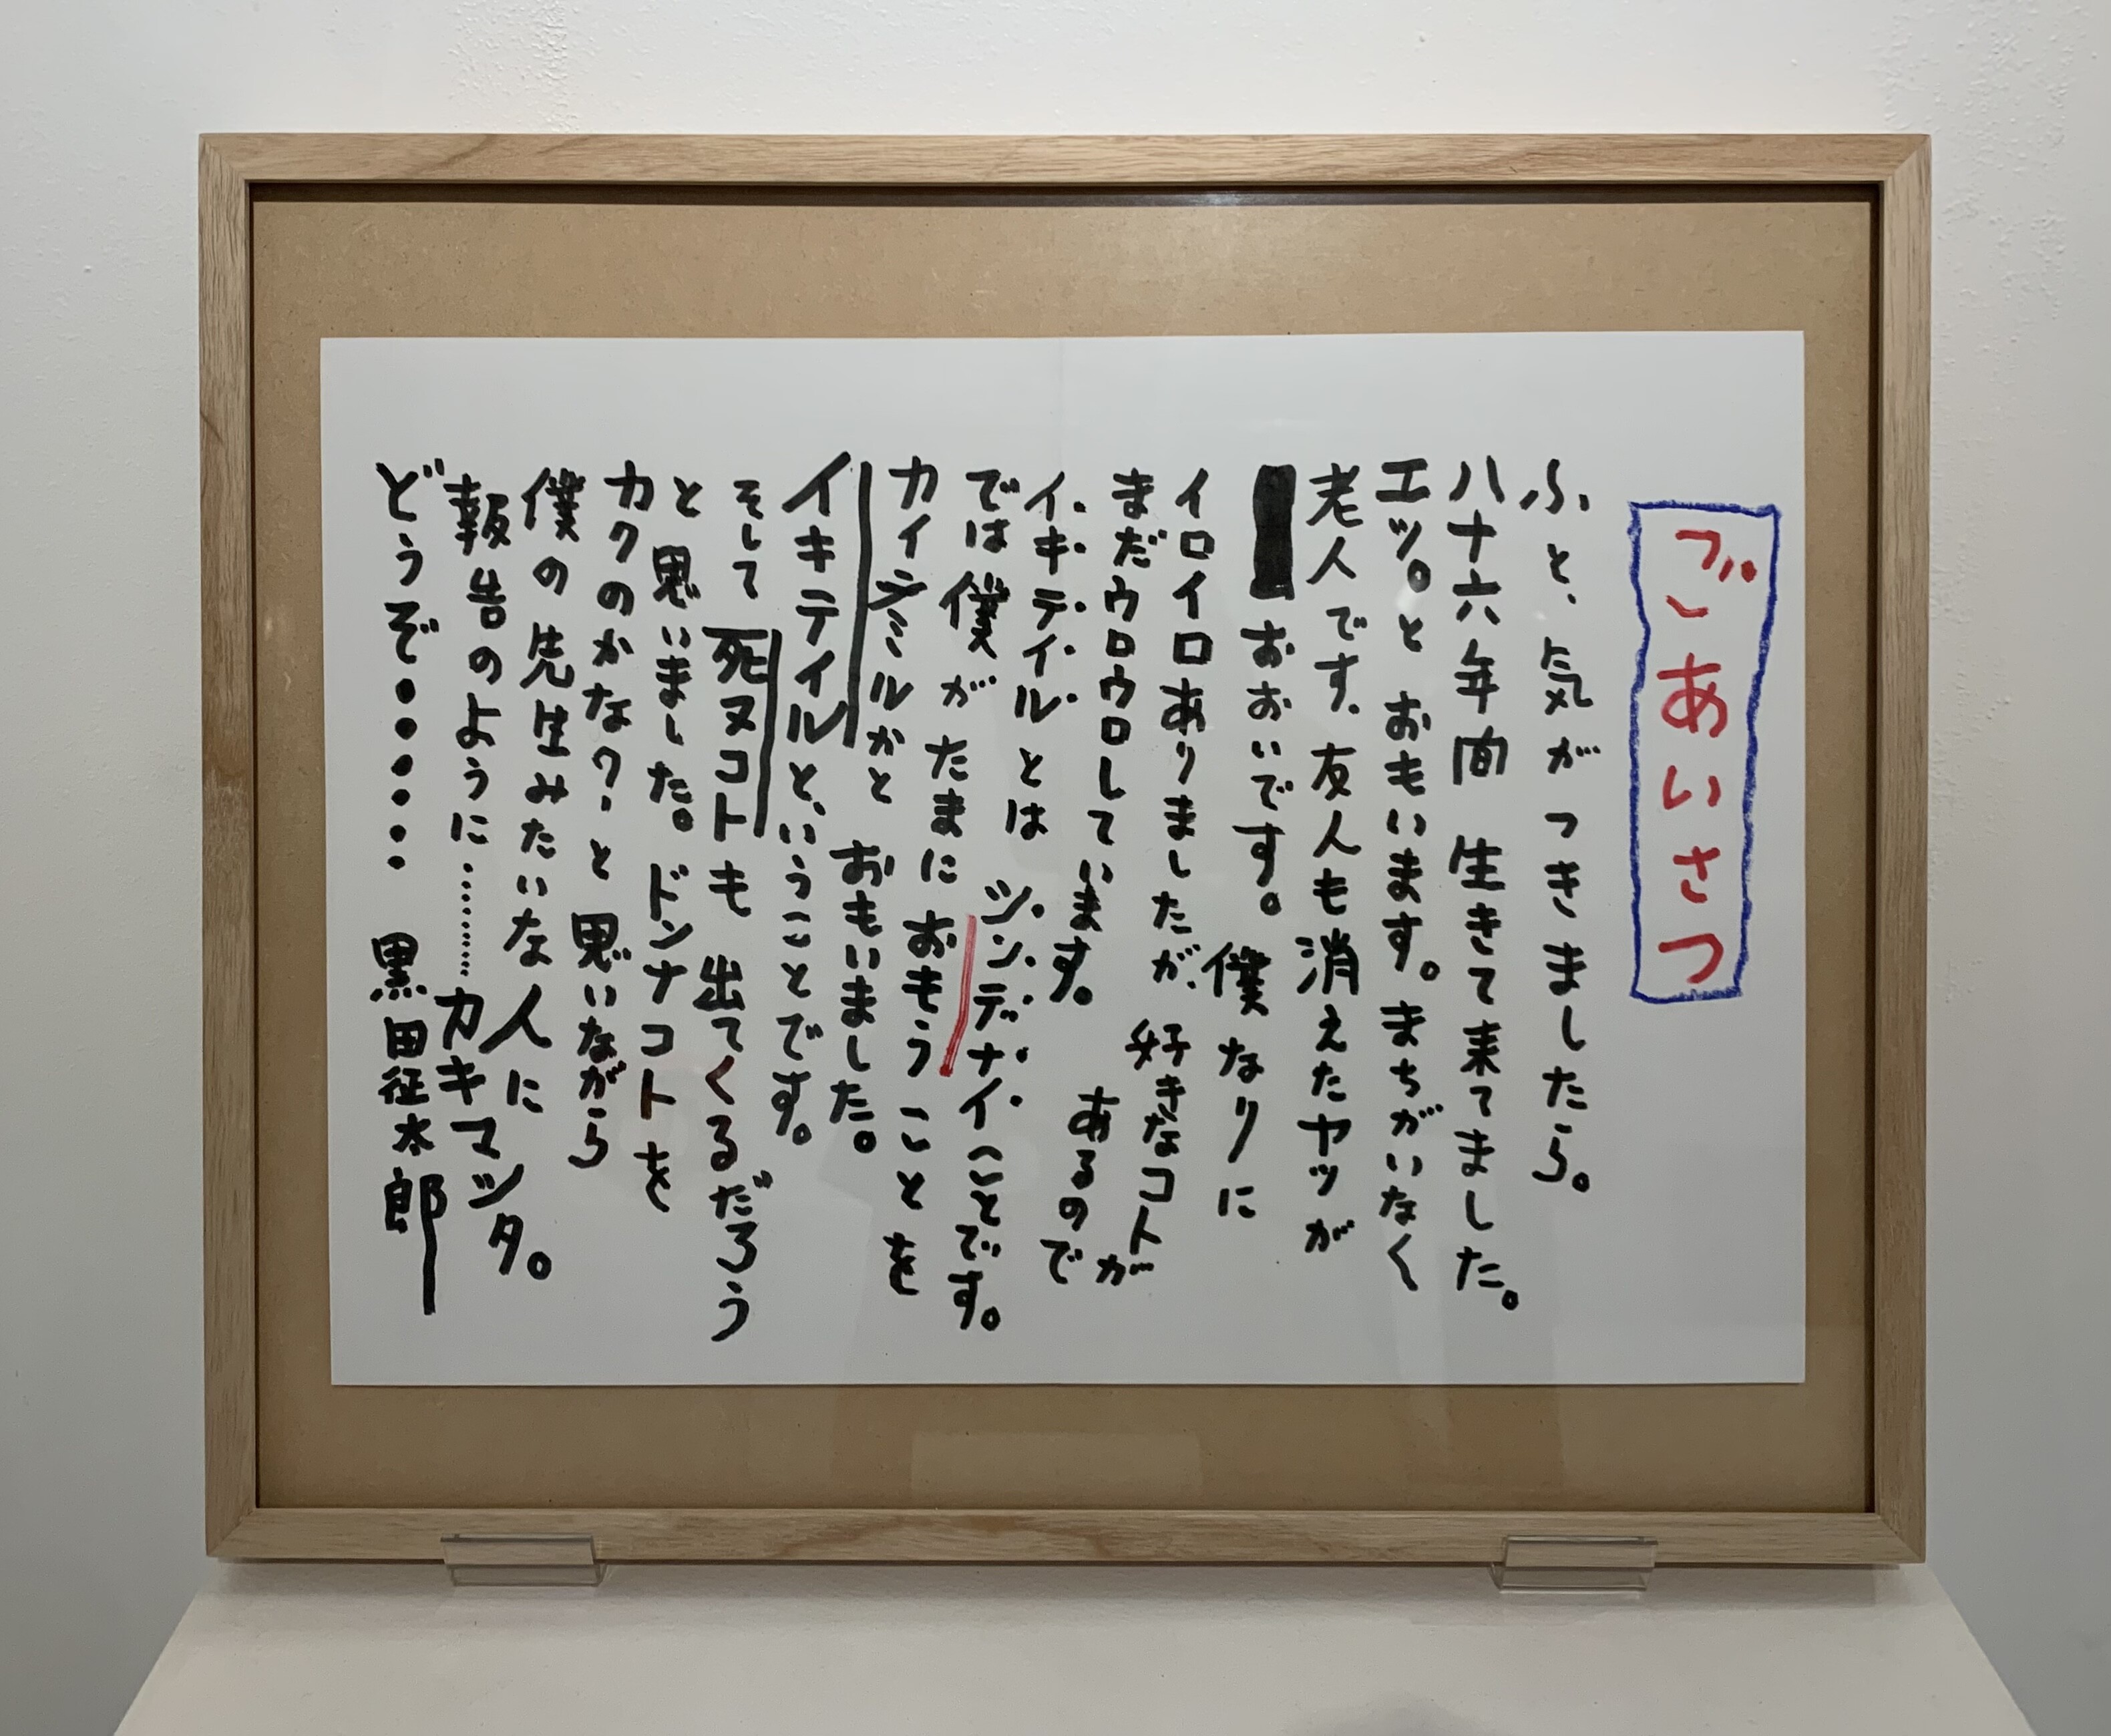 ごあいさつ
ふと、気がつきましたら。
八十六年間 生きて来てました。
エッ。と おもいます。まちがいなく
老人です。友人も消えたヤツが
おおいです。僕なりに
イロイロありましたが、好きなコトが
まだウロウロしています。あるので
イキテイルとは シンデナイことです。
では僕がたまにおもうことを
カイテミルかと おもいました。
イキテイルと、いうことです。
そして死ヌコトも出てくるだろう
と思いました。ドンナコトを
カクのかな?と思いながら
僕の先生みたいな人に
報告のように………カキマシタ。
どうぞ・・・・・・ 黒田征太郎